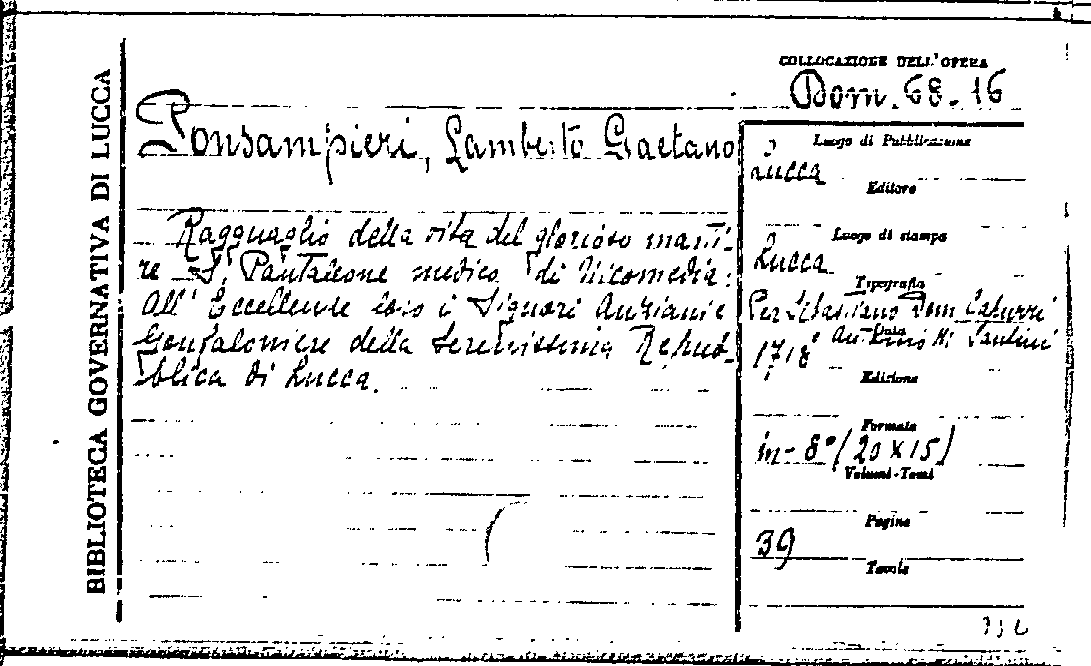 BIBLIOTECA GOVERNATIVA DI LUCCA
COLLOCAZIONE DELL'OPERA
Dom. 68-16
Ponsampieri, Lamberto Gaetano
Ragguaglio della vita del glorioso marti-
re S. Pantaleone medico di Nicomedia:
All' Eccellente i Signori Anziani e
Gonfaloniere della Serenissima Repub-
blica di Lucca.
Luogo di Pubblicazione
Lucca
Editore
Luogo di stampa
Lucca
Tipografia
Per Sebastiano Dom
Data
1718
Edizione
Formato
in-8° (20x15)
Volumi-Tomi
Pagine
39
Tavole